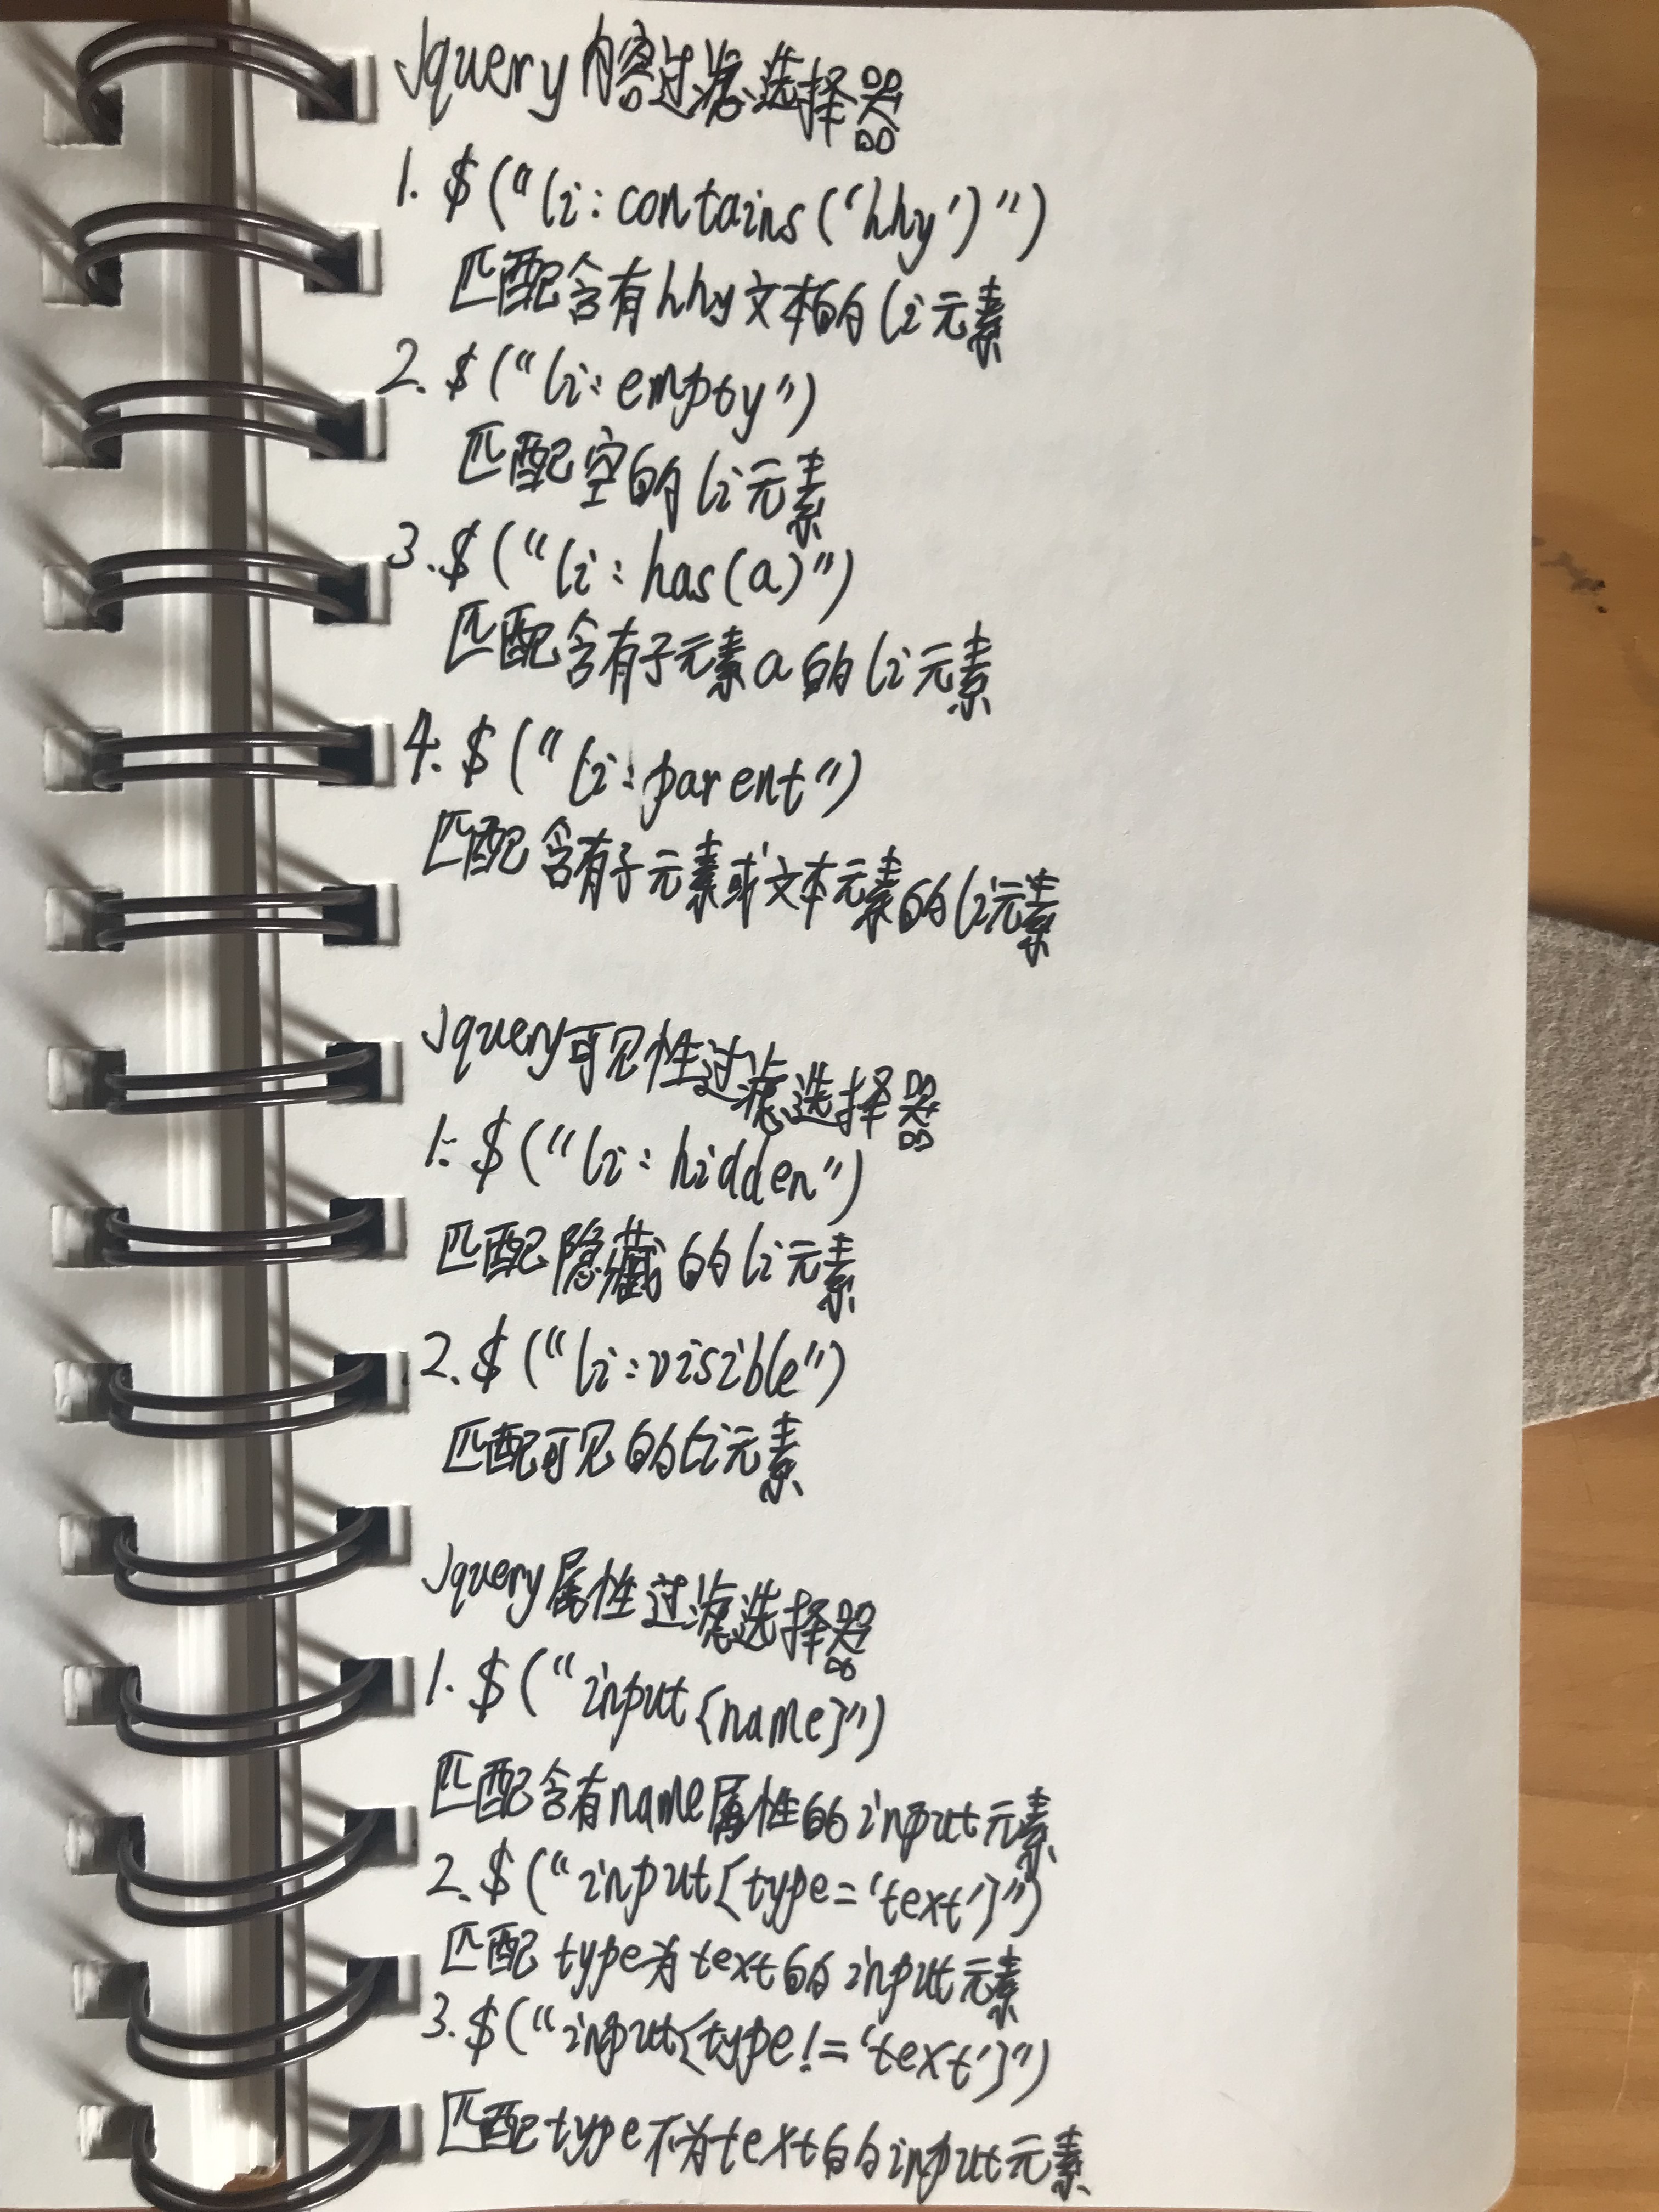 Jquery内容过滤选择器
1. $("li:contains('hhy')")
匹配含有hhy文本的li元素
2. $("li:empty")
匹配空的li元素
3. $("li:has(a)")
匹配含有子元素a的li元素
4. $("li:parent")
匹配含有子元素或文本元素的li元素
Jquery可见性过滤选择器
1. $("li:hidden")
匹配隐藏的li元素
2. $("li:visible")
匹配可见的li元素
Jquery属性过滤选择器
1. $("input[name]")
匹配含有name属性的input元素
2. $("input[type='text']")
匹配type为text的input元素
3. $("input[type!='text']")
匹配type不为text的input元素